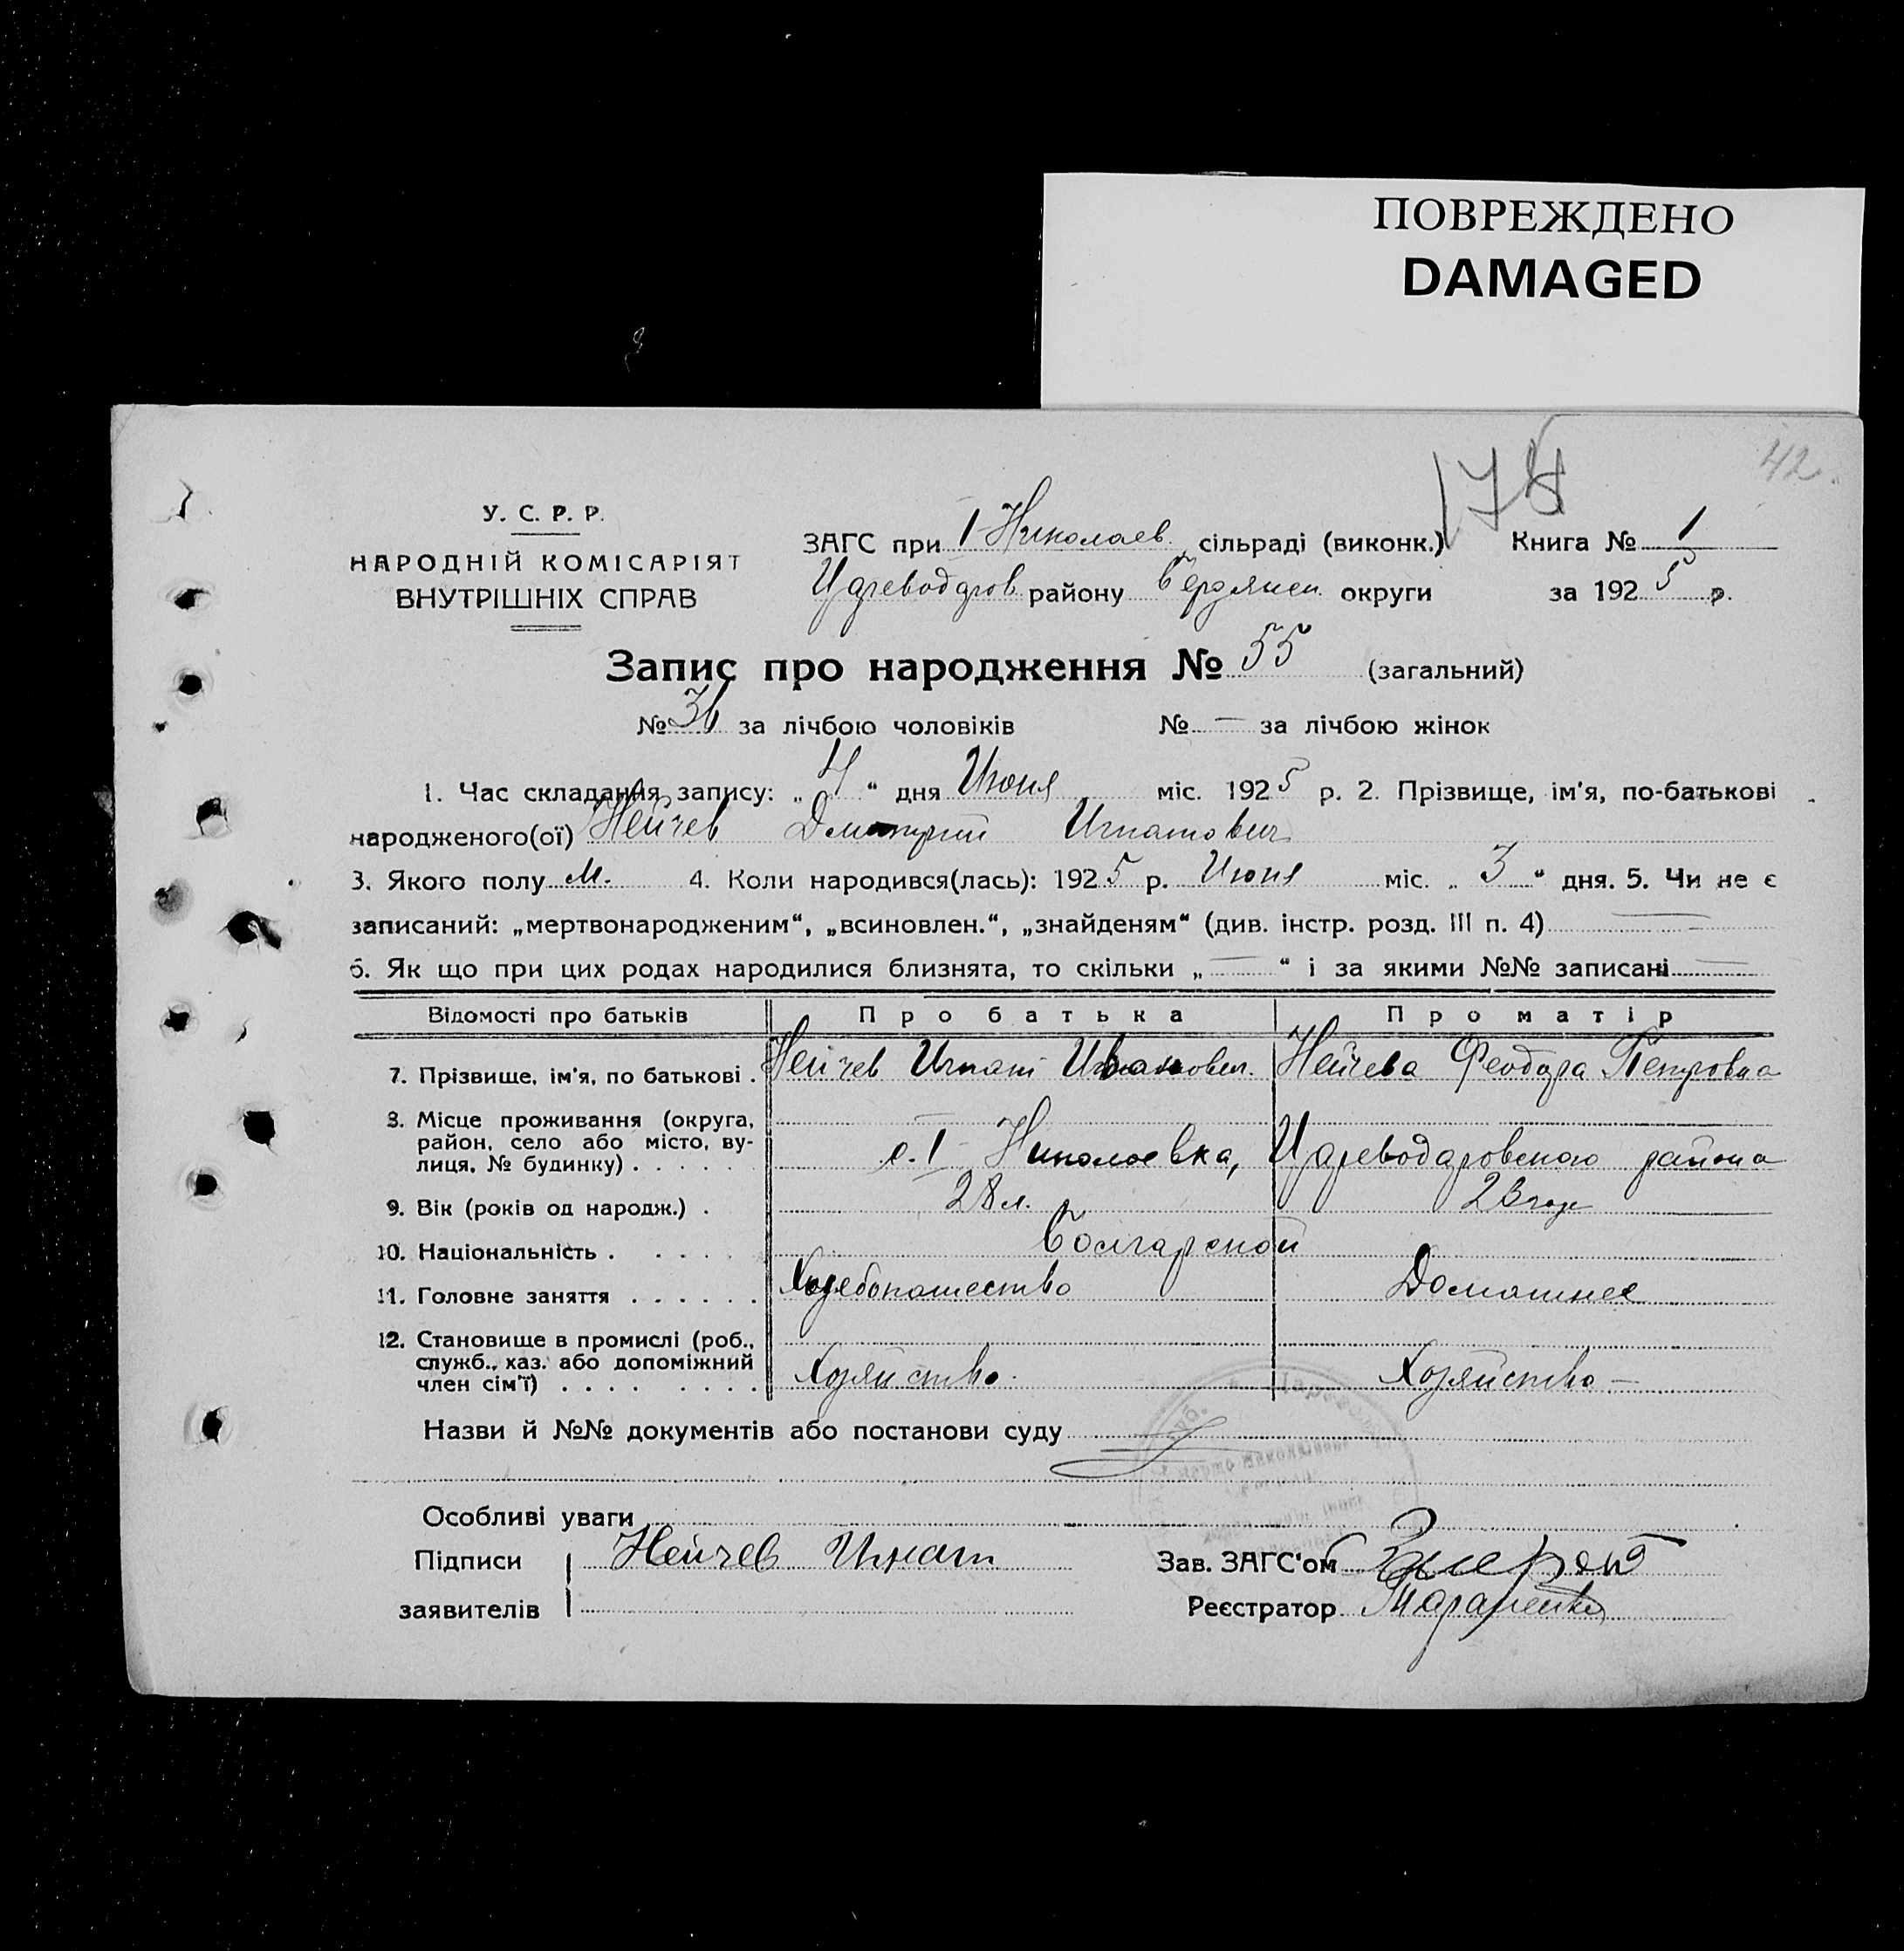 ПОВРЕЖДЕНО
DAMAGED
42.
У. С. Р. Р.
НАРОДНІЙ КОМІСАРІЯТ
ВНУТРІШНІХ СПРАВ
ЗАГС при 1-Николаев. сільраді (виконк.) Книга № 1
Цареводаров. району Бердянск. округи за 1925 р.
Запис про народження № 55 (загальний)
№ 36 за лічбою чоловіків № — за лічбою жінок
1. Час складання запису: „ 4 “ дня Июня міс. 1925 р. 2. Прізвище, ім'я, по-батькові
народженого(ої) Нейчев Дмитрий Игнатович
3. Якого полу м. 4. Коли народився(лась): 1925 р. Июня міс. „ 3 “ дня. 5. Чи не є
записаний: „мертвонародженим“, „всиновлен.“, „знайденям“ (див. інстр. розд. III п. 4) —
6. Як що при цих родах народилися близнята, то скільки „ — “ і за якими №№ записані —
Відомості про батьків Про батька Про матір
7. Прізвище, ім'я, по батькові . Нейчев Игнат Иванович. Нейчева Феодора Петровна
8. Місце проживання (округа,
район, село або місто, ву-
лиця, № будинку) . . . . . с. 1 Николаевка, Цареводаровского района
9. Вік (років од народж.) . 28 л. 23 года
10. Національність . . . . . Болгарской
11. Головне заняття . . . . . . Хлебопашество Домашнее
12. Становище в промислі (роб.,
служб., хаз. або допоміжний
член сім'ї) . . . . . . . . Хозяйство. Хозяйство —
Назви й №№ документів або постанови суду
Особливі уваги
Підписи Нейчев Игнат Зав. ЗАГС'ом
заявителів Реєстратор Тараненко